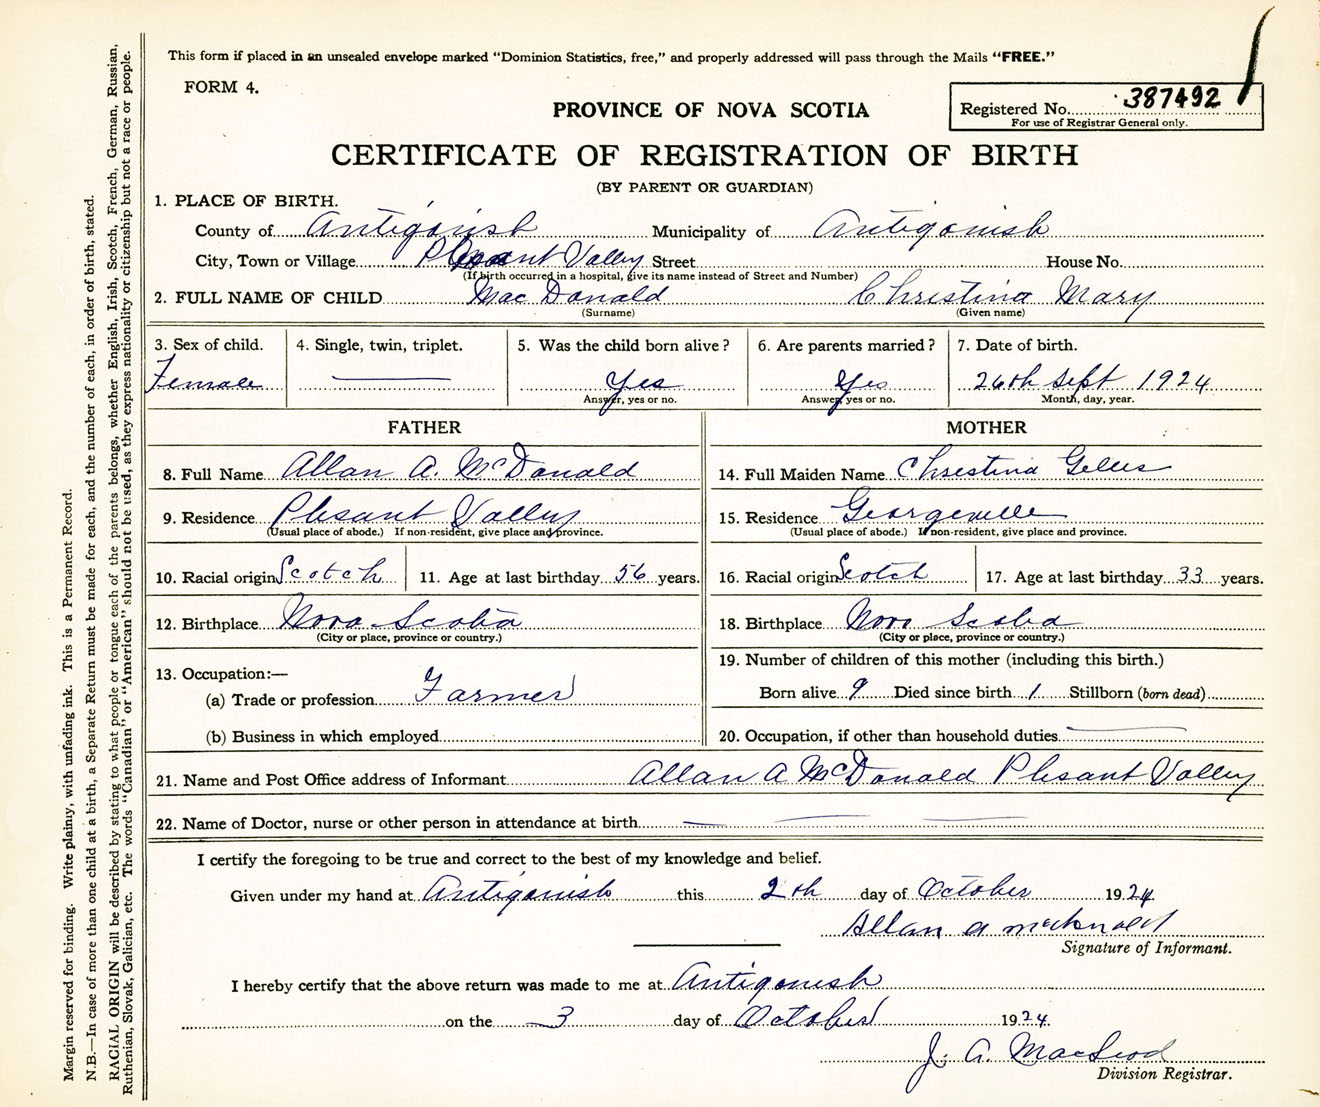 This form if placed in an unsealed envelope marked "Dominion Statistics, free," and properly addressed will pass through the Mails "FREE."
FORM 4.
Registered No. 387492
For use of Registrar General only.
PROVINCE OF NOVA SCOTIA
CERTIFICATE OF REGISTRATION OF BIRTH
(BY PARENT OR GUARDIAN)
1. PLACE OF BIRTH.
County of Antigonish Municipality of Antigonish
City, Town or Village Plesant Valley Street House No.
(If birth occurred in a hospital, give its name instead of Street and Number)
2. FULL NAME OF CHILD Mac Donald Christina Mary
(Surname) (Given name)
3. Sex of child. 4. Single, twin, triplet. 5. Was the child born alive? 6. Are parents married? 7. Date of birth.
Female — Yes Yes 26th Sept 1924
Answer, yes or no. Answer, yes or no. Month, day, year.
FATHER MOTHER
8. Full Name Allan A. McDonald 14. Full Maiden Name Christina Gillis
9. Residence Plesant Valley 15. Residence Georgeville
(Usual place of abode.) If non-resident, give place and province. (Usual place of abode.) If non-resident, give place and province.
10. Racial origin Scotch 11. Age at last birthday 56 years. 16. Racial origin Scotch 17. Age at last birthday 33 years.
12. Birthplace Nova Scotia 18. Birthplace Nova Scotia
(City or place, province or country.) (City or place, province or country.)
13. Occupation:— 19. Number of children of this mother (including this birth.)
(a) Trade or profession Farmer Born alive 9 Died since birth 1 Stillborn (born dead)
(b) Business in which employed 20. Occupation, if other than household duties —
21. Name and Post Office address of Informant Allan A McDonald Plesant Valley
22. Name of Doctor, nurse or other person in attendance at birth — — —
I certify the foregoing to be true and correct to the best of my knowledge and belief.
Given under my hand at Antigonish this 2th day of October 1924
Allan A McDonald
Signature of Informant.
I hereby certify that the above return was made to me at Antigonish
on the 3 day of October 1924
J. A. MacLeod
Division Registrar.
Margin reserved for binding. Write plainly, with unfading ink. This is a Permanent Record.
N.B.—In case of more than one child at a birth, a Separate Return must be made for each, and the number of each, in order of birth, stated.
RACIAL ORIGIN will be described by stating to what people or tongue each of the parents belongs, whether English, Irish, Scotch, French, German, Russian,
Ruthenian, Slovak, Galician, etc. The words "Canadian" or "American" should not be used, as they express nationality or citizenship but not a race or people.